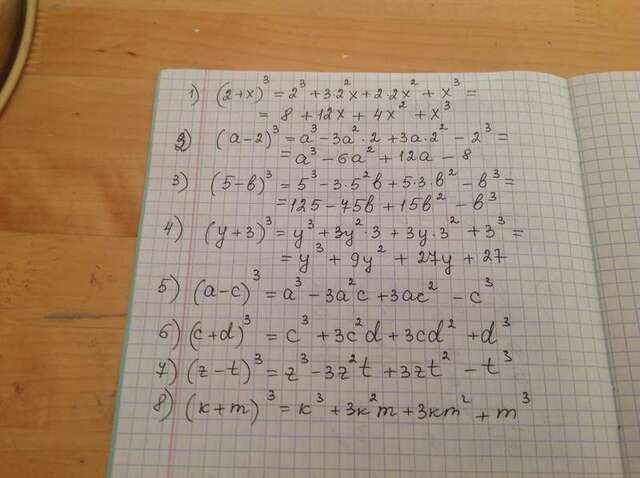 1) (2+x)³ = 2³+3·2²x+2·2x²+x³ =
= 8 + 12x + 4x² + x³
2) (a-2)³ = a³-3a²·2+3a·2²-2³ =
= a³-6a²+12a-8
3) (5-в)³ = 5³-3·5²в+5·3·в²-в³ =
= 125-75в+15в²-в³
4) (y+3)³ = y³+3y²·3+3y·3²+3³ =
= y³+9y²+27y+27
5) (a-c)³ = a³-3a²c+3ac²-c³
6) (c+d)³ = c³+3c²d+3cd²+d³
7) (z-t)³ = z³-3z²t+3zt²-t³
8) (к+m)³ = к³+3к²m+3кm²+m³